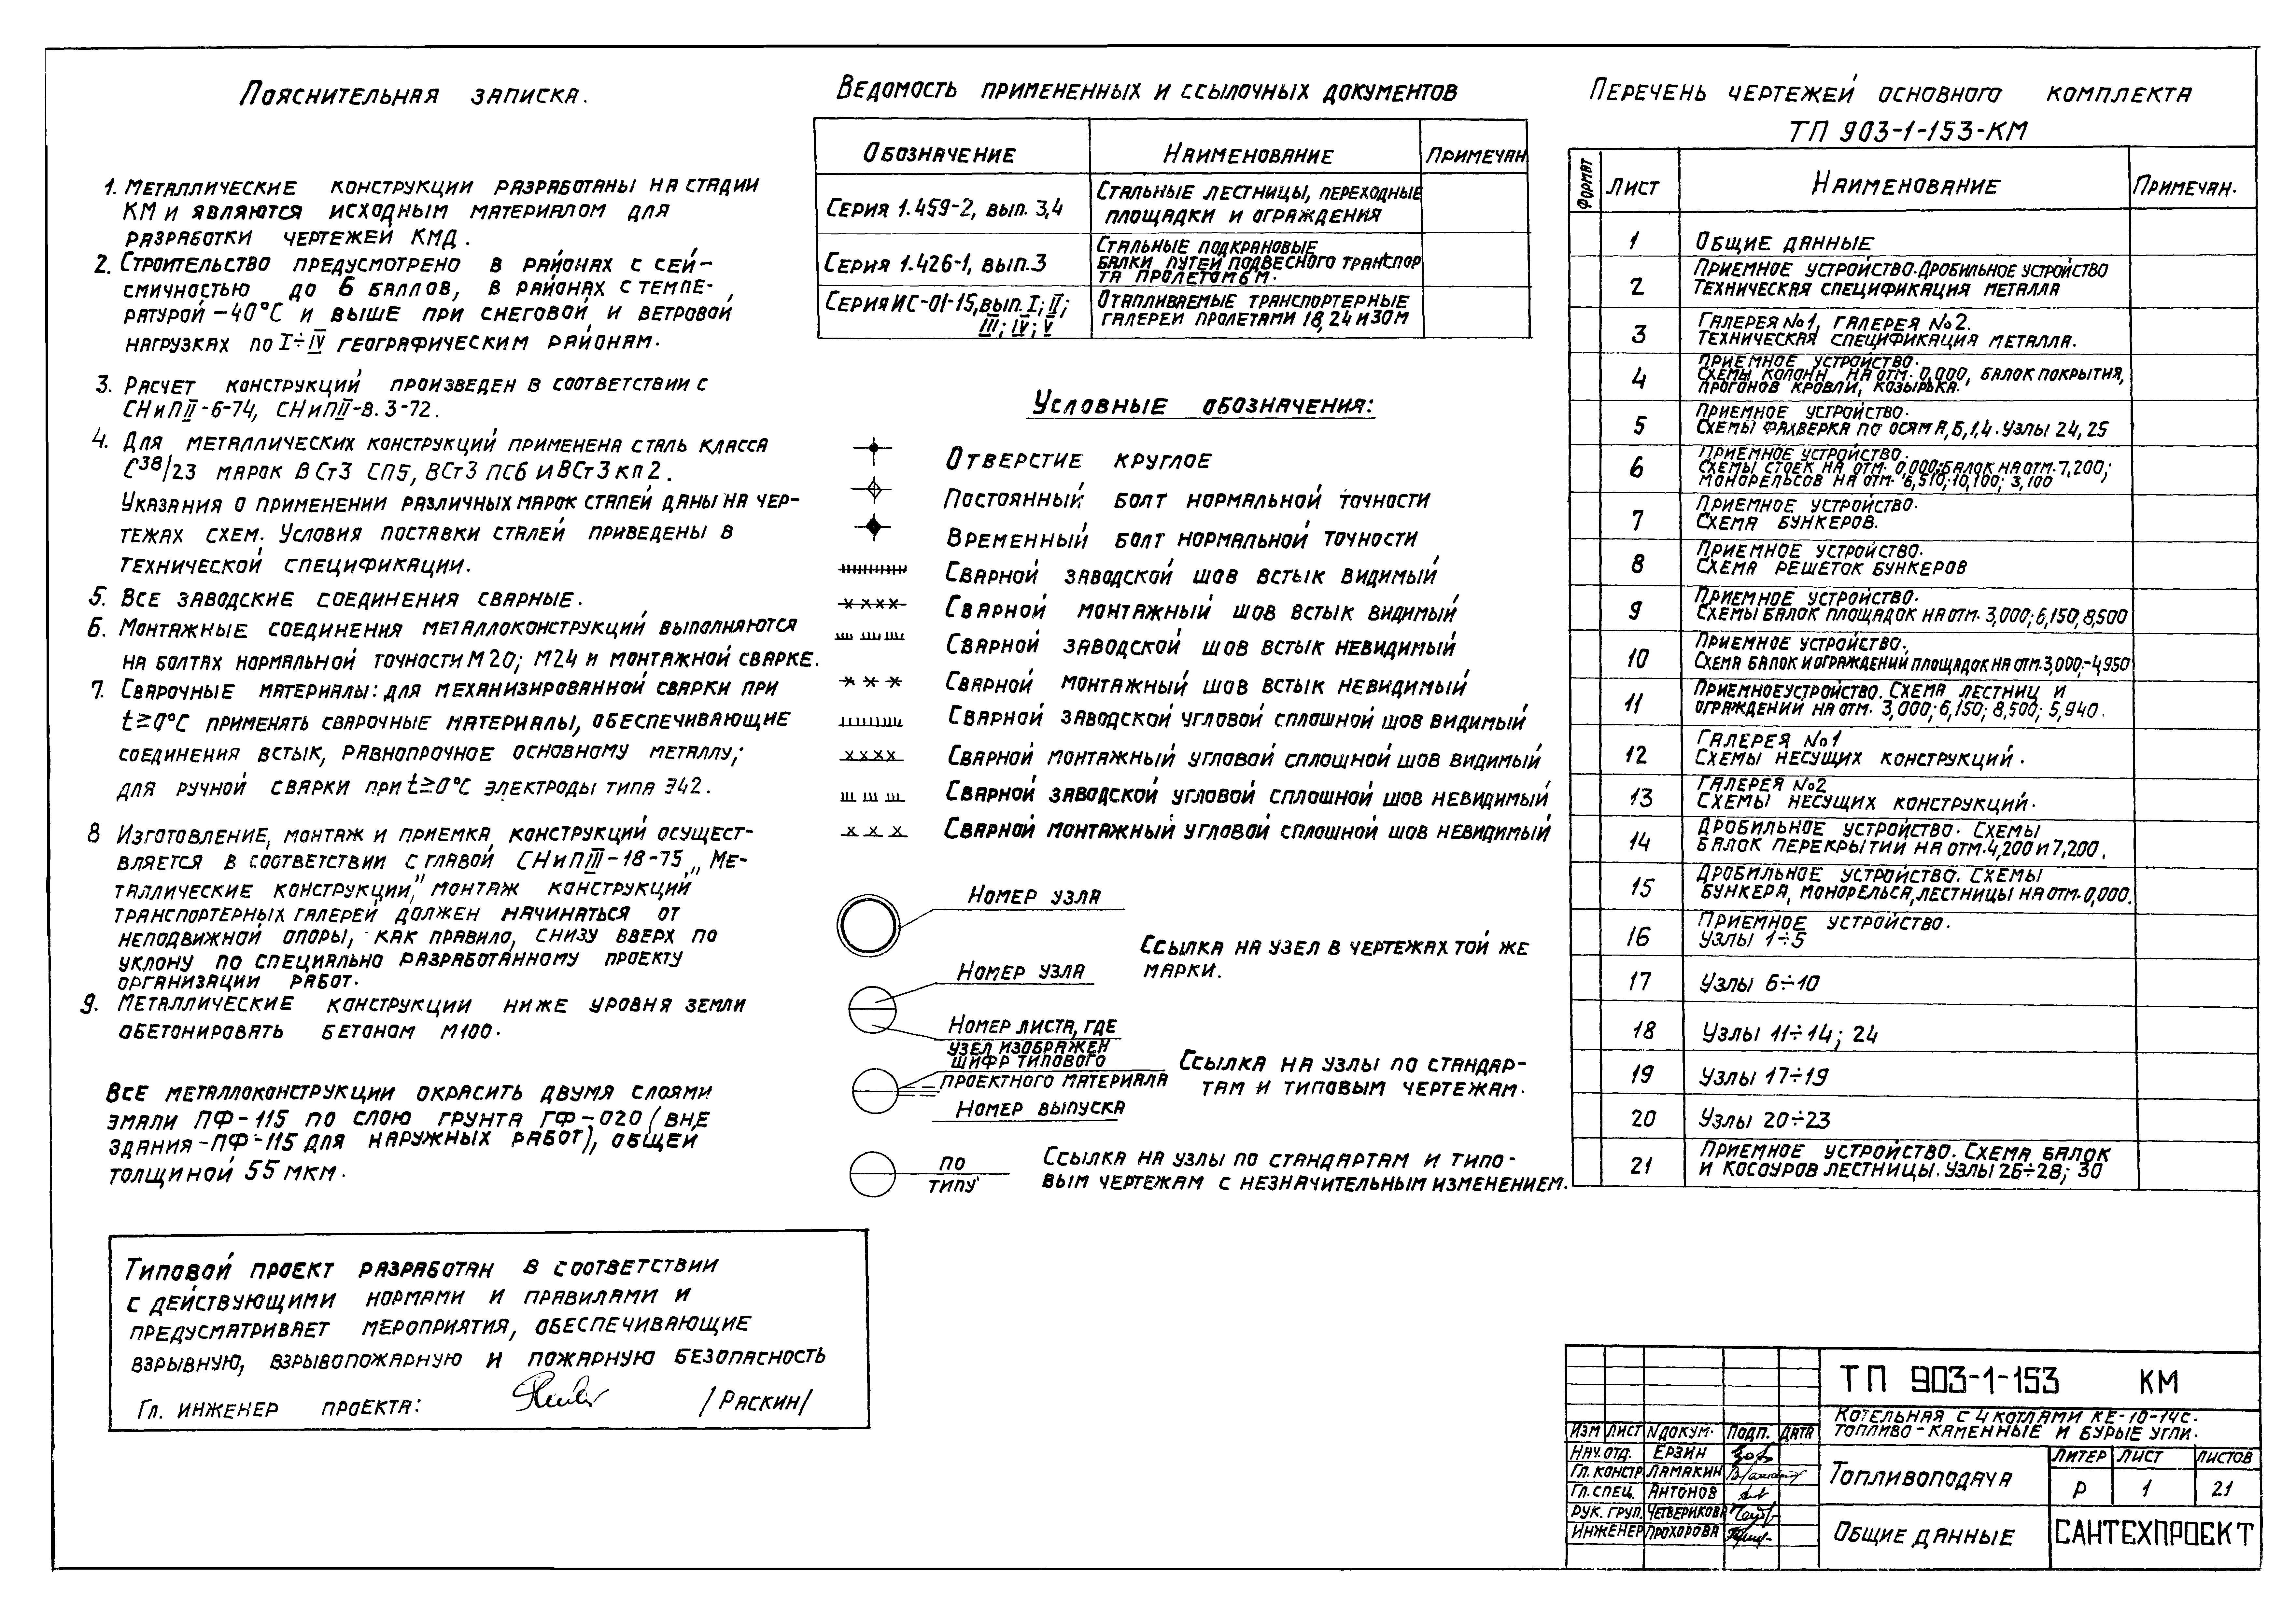 Пояснительная записка.
1. Металлические конструкции разработаны на стадии
КМ и являются исходным материалом для
разработки чертежей КМД.
2. Строительство предусмотрено в районах с сей-
смичностью до 6 баллов, в районах с темпе-
ратурой -40°С и выше при снеговой и ветровой
нагрузках по I÷IV географическим районам.
3. Расчет конструкций произведен в соответствии с
СНиПII-6-74, СНиПII-В.3-72.
4. Для металлических конструкций применена сталь класса
С38/23 марок ВСт3 СП5, ВСт3 ПС6 и ВСт3 кп2.
Указания о применении различных марок сталей даны на чер-
тежах схем. Условия поставки сталей приведены в
технической спецификации.
5. Все заводские соединения сварные.
6. Монтажные соединения металлоконструкций выполняются
на болтах нормальной точности М20; М24 и монтажной сварке.
7. Сварочные материалы: для механизированной сварки при
t≥0°С применять сварочные материалы, обеспечивающие
соединения встык, равнопрочное основному металлу;
для ручной сварки при t≥0°С электроды типа Э42.
8 Изготовление, монтаж и приемка конструкций осущест-
вляется в соответствии с главой СНиПIII-18-75 „Ме-
таллические конструкции," монтаж конструкций
транспортерных галерей должен начинаться от
неподвижной опоры, как правило, снизу вверх по
уклону по специально разработанному проекту
организации работ.
9. Металлические конструкции ниже уровня земли
обетонировать бетоном М100.
Все металлоконструкции окрасить двумя слоями
эмали ПФ-115 по слою грунта ГФ-020 (вне
здания-ПФ-115 для наружных работ), общей
толщиной 55 мкм.
Типовой проект разработан в соответствии
с действующими нормами и правилами и
предусматривает мероприятия, обеспечивающие
взрывную, взрывопожарную и пожарную безопасность
Гл. инженер проекта: /Раскин/
Ведомость примененных и ссылочных документов
Обозначение Наименование Примечан
Серия 1.459-2, вып. 3,4 Стальные лестницы, переходные
площадки и ограждения
Серия 1.426-1, вып.3 Стальные подкрановые
балки путей подвесного транспор
та пролетом 6 м.
Серия ИС-01-15, вып. I; II; Отапливаемые транспортерные
III; IV; V галереи пролетами 18, 24 и 30 м
Условные обозначения:
Отверстие круглое
Постоянный болт нормальной точности
Временный болт нормальной точности
Сварной заводской шов встык видимый
Сварной монтажный шов встык видимый
Сварной заводской шов встык невидимый
Сварной монтажный шов встык невидимый
Сварной заводской угловой сплошной шов видимый
Сварной монтажный угловой сплошной шов видимый
Сварной заводской угловой сплошной шов невидимый
Сварной монтажный угловой сплошной шов невидимый
Номер узла
Ссылка на узел в чертежах той же
марки.
Номер узла
Номер листа, где
узел изображен
шифр типового
проектного материала
Номер выпуска
Ссылка на узлы по стандар-
там и типовым чертежам.
по
типу
Ссылка на узлы по стандартам и типо-
вым чертежам с незначительным изменением.
Перечень чертежей основного комплекта
ТП 903-1-153-КМ
Формат Лист Наименование Примечан.
1 Общие данные
2 Приемное устройство. Дробильное устройство
Техническая спецификация металла
3 Галерея №1, галерея №2.
Техническая спецификация металла.
4 Приемное устройство.
Схемы колонн на отм. 0,000, балок покрытия,
прогонов кровли, козырька.
5 Приемное устройство.
Схемы фахверка по осям А,Б,1,4. Узлы 24, 25
6 Приемное устройство.
Схемы стоек на отм. 0,000; балок на отм. 7,200;
монорельсов на отм. 6,510; 10,100; 3,100
7 Приемное устройство.
Схема бункеров.
8 Приемное устройство.
Схема решеток бункеров
9 Приемное устройство.
Схемы балок площадок на отм. 3,000; 6,150; 8,500
10 Приемное устройство.
Схема балок и ограждений площадок на отм. 3,000; -4,950
11 Приемное устройство. Схема лестниц и
ограждений на отм. 3,000; 6,150; 8,500; 5,940.
12 Галерея №1
Схемы несущих конструкций.
13 Галерея №2
Схемы несущих конструкций.
14 Дробильное устройство. Схемы
балок перекрытий на отм. 4,200 и 7,200.
15 Дробильное устройство. Схемы
бункера, монорельса, лестницы на отм. 0,000.
16 Приемное устройство.
Узлы 1÷5
17 Узлы 6÷10
18 Узлы 11÷14; 24
19 Узлы 17÷19
20 Узлы 20÷23
21 Приемное устройство. Схема балок
и косоуров лестницы. Узлы 26÷28; 30
ТП 903-1-153 КМ
Котельная с 4 котлами КЕ-10-14с.
Топливо-каменные и бурые угли.
Изм Лист №докум. Подп. Дата
Нач. отд. Ерзин
Гл. констр Ламакин
Гл. спец. Антонов
Рук. груп. Четверикова
Инженер Прохорова
Топливоподача
Литер Лист Листов
Р 1 21
Общие данные
САНТЕХПРОЕКТ